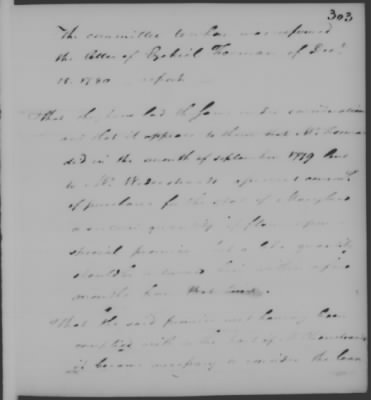 303
The committee to whom was referred
the letter of Ezekiel Forman of Decr
15. 1780 report
That they have had the same under consideration
and that it appears to them that Mr. Forman
did in the month of september 1779
to Mr. agent
of purchases for the state of Maryland
a certain quantity of flour upon
special promise that a like quantity
should be returned him within a few
months from that
That the said promise not having been
complied with on the part of
it became necessary to consider the loan